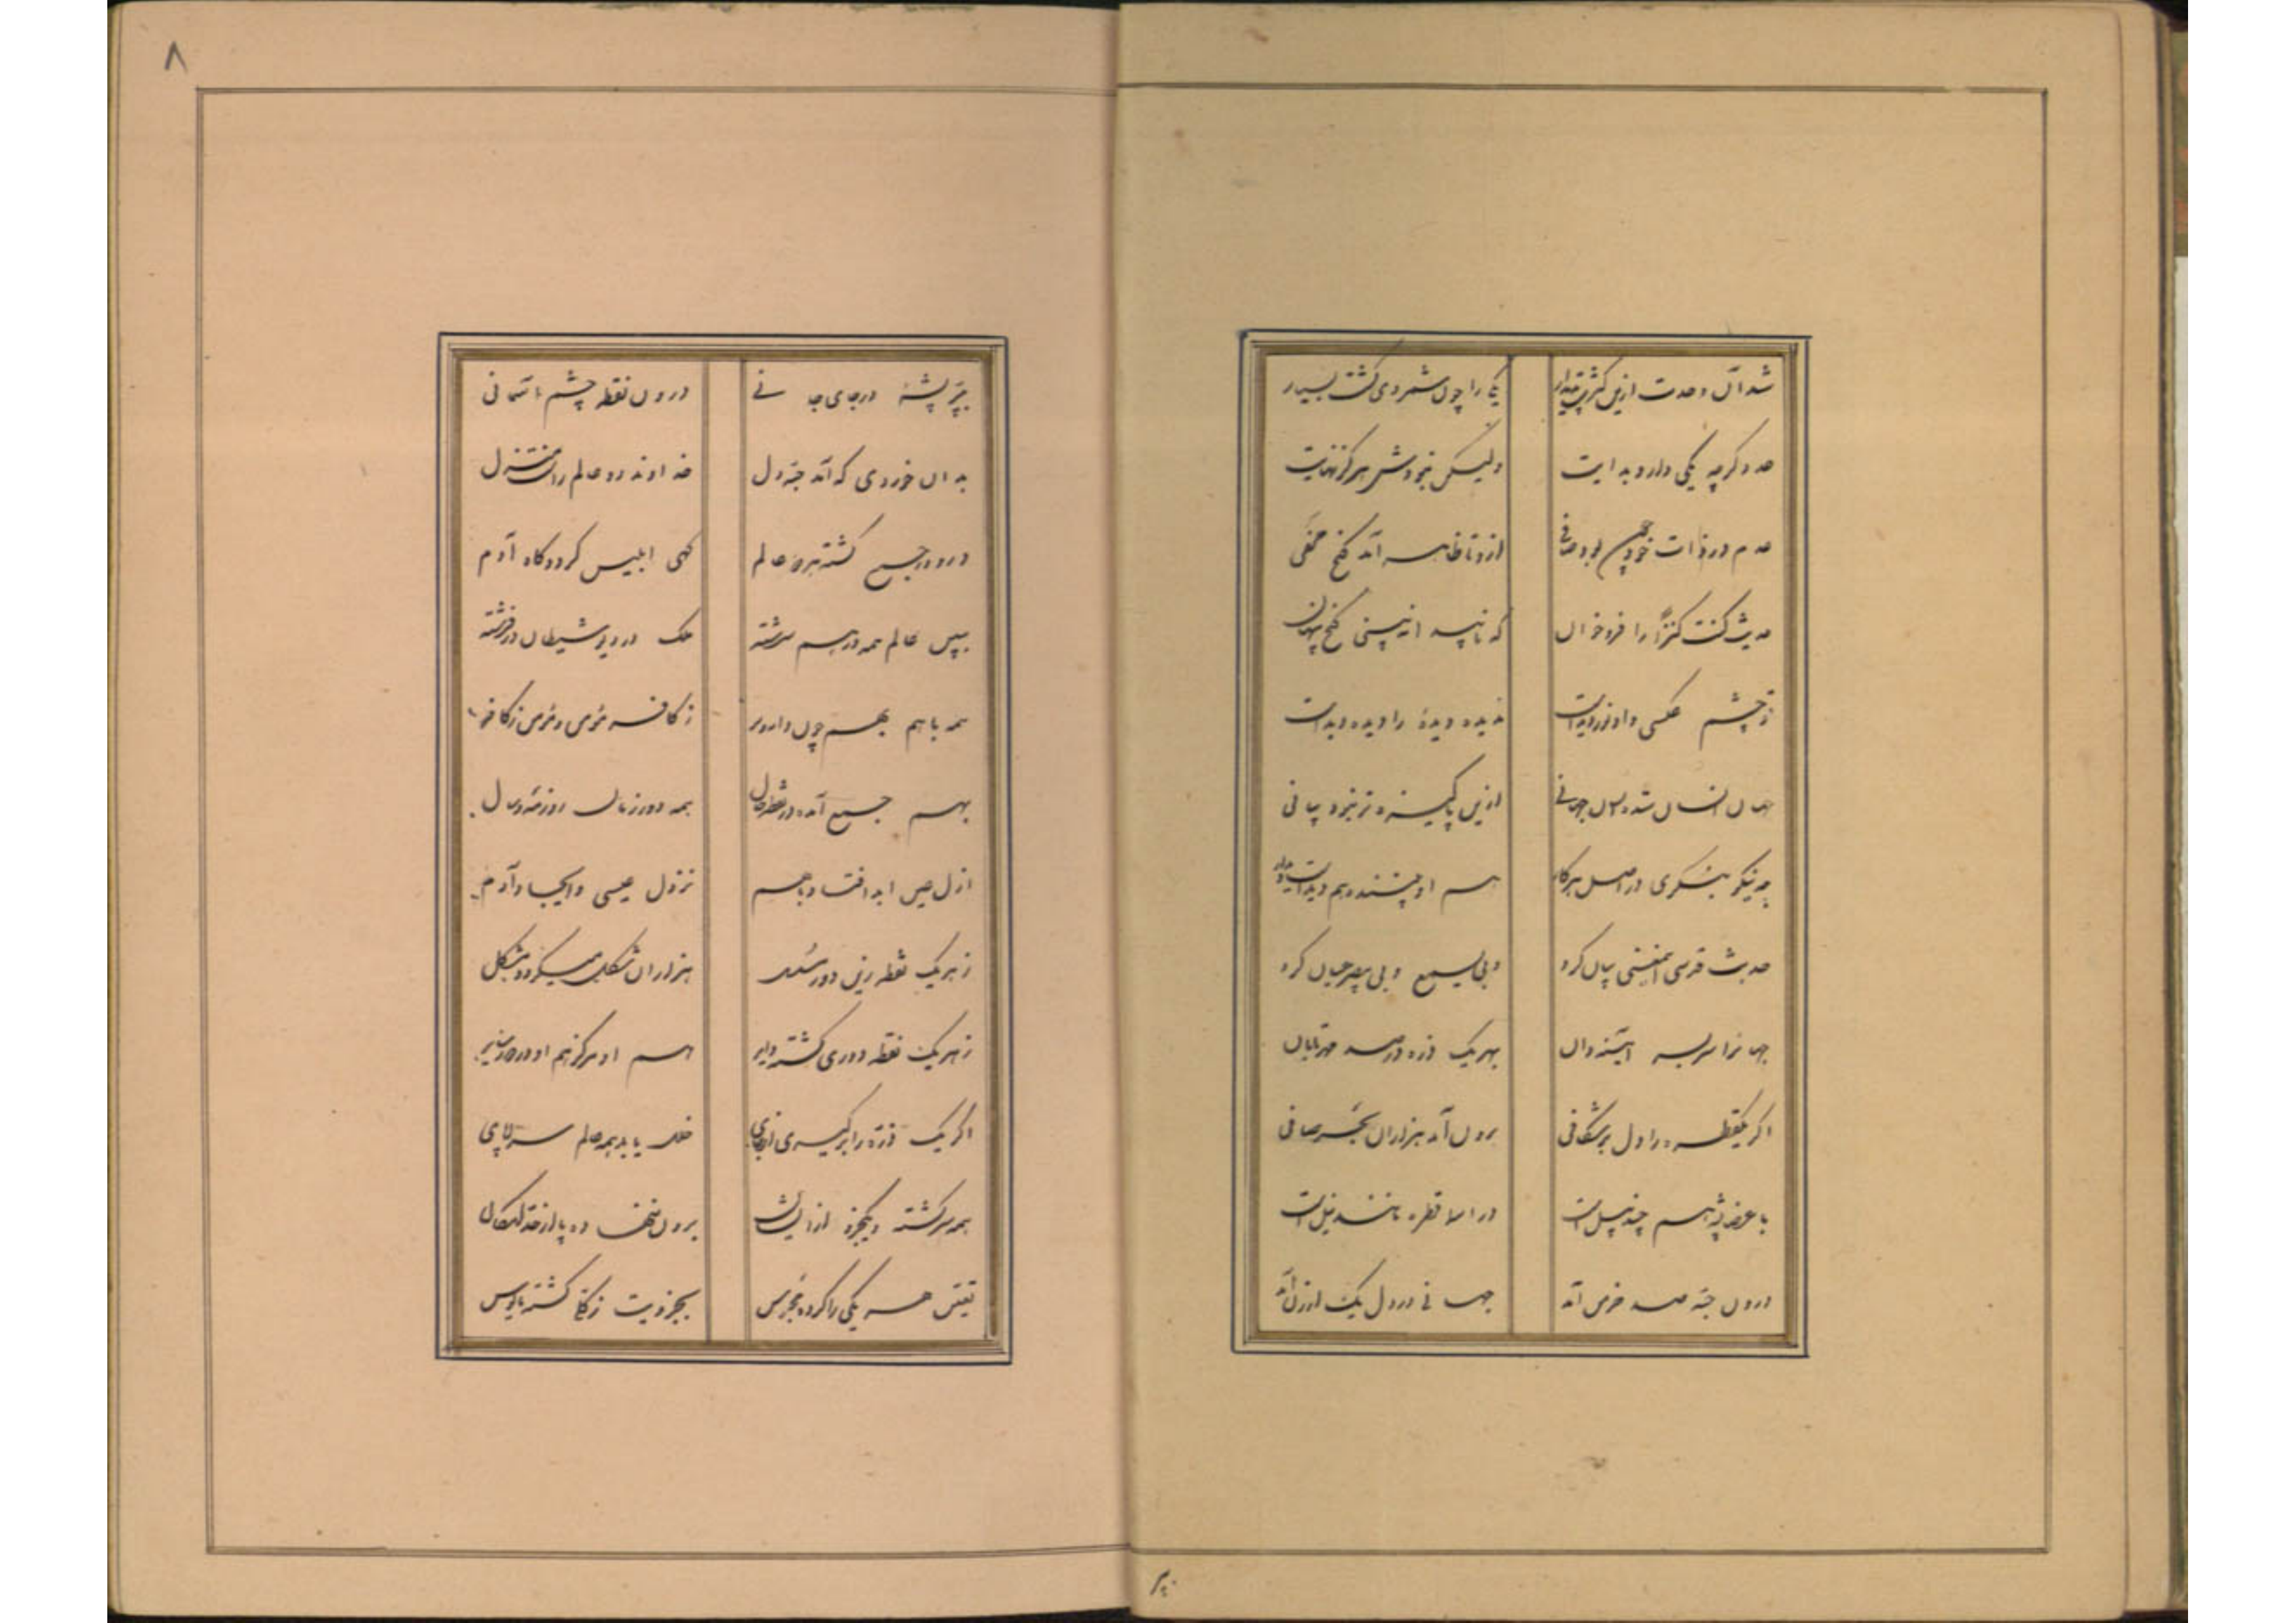 شد آن وحدت ازین کثرت پدیدار یکی را چون شمردی گشت بسیار
عدد گرچه یکی دارد بدایت ولیکن نبودش هرگز نهایت
عدم در ذات خود چون بود صافی ازو تا ظاهر آمد گنج مخفی
حدیث کنت کنزاً را فرو خوان که تا پیدا ببینی گنج پنهان
تو چشم عکسی و او نور دیده است بدیده دیدهٔ را دیده دیده است
جهان انسان شد و انسان جهانی ازین پاکیزه تر نبود بیانی
چو نیکو بنگری در اصل هر کار هم او بیننده هم دیده است و دیدار
حدیث قدسی این معنی بیان کرد و بی یسمع و بی یبصر عیان کرد
جهانرا سر بسر آیینه دان بهر یک ذره در صد مهر تابان
اگر یکقطره را دل برشکافی برون آید هزاران بحر صافی
با عضا پشهٔ هم چند پیل است در اسما قطرهٔ مانند نیل است
درون حبّهٔ صد خرمن آمد جهانی در دل یک ارزن آمد
بپر
۸
بپرّ پشهٔ در جای جانی درون نقطه چشم آسمانی
بدان خوردی که آمد حبّه دل خداوند دو عالم راست منزل
درو در جمع گشته هر دو عالم گهی ابلیس گردد گاه آدم
ببین عالم همه در هم سرشته ملک در دیو و شیطان در فرشته
همه با هم بهم چون دانه و بر ز کافر مؤمن و مؤمن ز کافر
بهم جمع آمده در نقطهٔ حال همه دور زمان روز و مه و سال
ازل عین ابد افتاد با هم نزول عیسی و ایجاد آدم
ز هر یک نقطه زین دور مسلسل هزاران شکل میگردد مشکل
ز هر یک نقطه دوری گشته دایر هم او مرکز هم او در دور سایر
اگر یک ذره را برگیری از جای خلل یابد همه عالم سراپای
همه سرگشته و یکجزو ازیشان برون ننهاده پا از حد امکان
تعین هر یکی را کرده محبوس بجزویت ز کلی گشته مأیوس